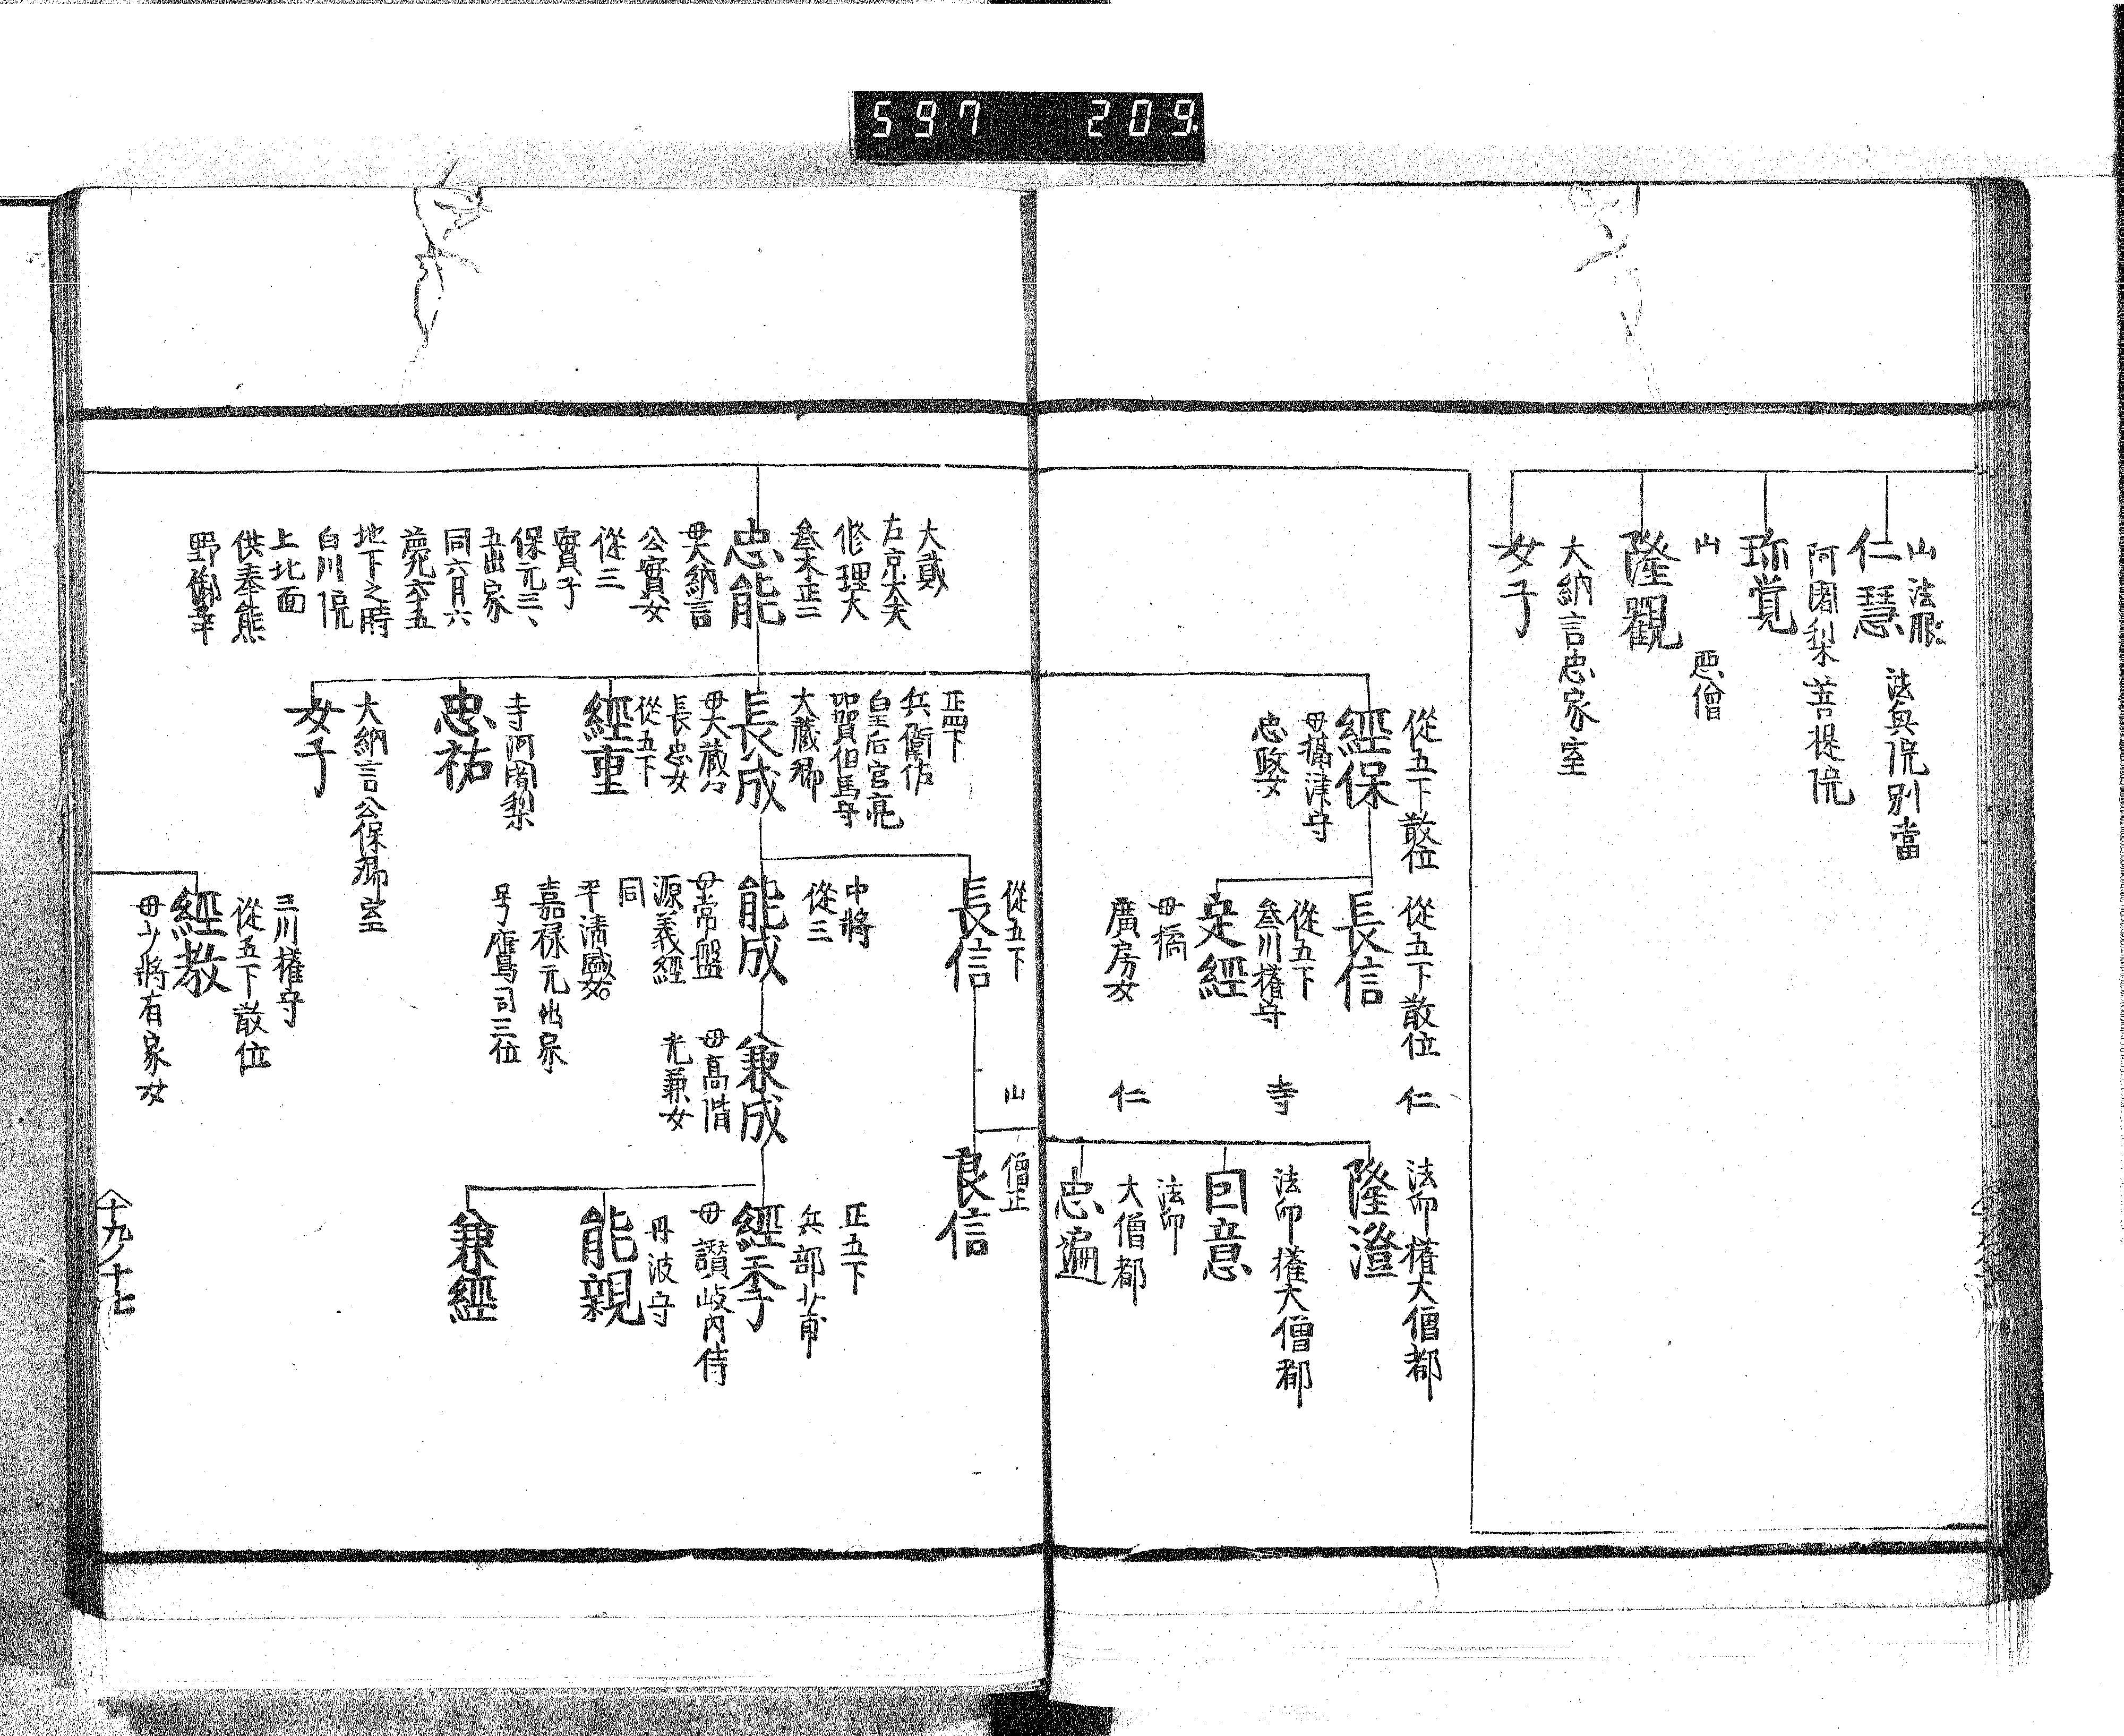 597 209
山 法眼
仁慧
法興院別當
珎覚
阿闍梨 菩提院
山 悪僧
隆觀
大納言忠家室
女子
從五下 散位
經保
母攝津守
忠政女
從五下 散位
長信
從五下
叁川權守
定經
母橘
廣房女
仁 法印 權大僧都
隆澄
寺 法印 權大僧都
回意
仁 法印
大僧都
忠遍
山 僧正
良信
從五下
長信
大貳
左京大夫
修理大
叁木正三
忠能
母大納言
公實女
從三
實子
保元三、
五出家
同六月六
薨六十五
地下之時
白川院
上北面
供奉熊
野御幸
正四下
兵衛佐
皇后宮亮
加賀伯馬守
大藏卿
長成
母大藏
長忠女
從五下
經重
寺阿闍梨
忠祐
大納言公保卿室
女子
中將
從三
能成
母常盤
源義經
同
平清盛妾
嘉禄元出家
号鷹司三位
母高階
光兼女
兼成
正五下
兵部少甫
經季
母讃岐内侍
丹波守
能親
兼經
三川權守
從五下散位
經教
母少將有家女
十九ノ十七